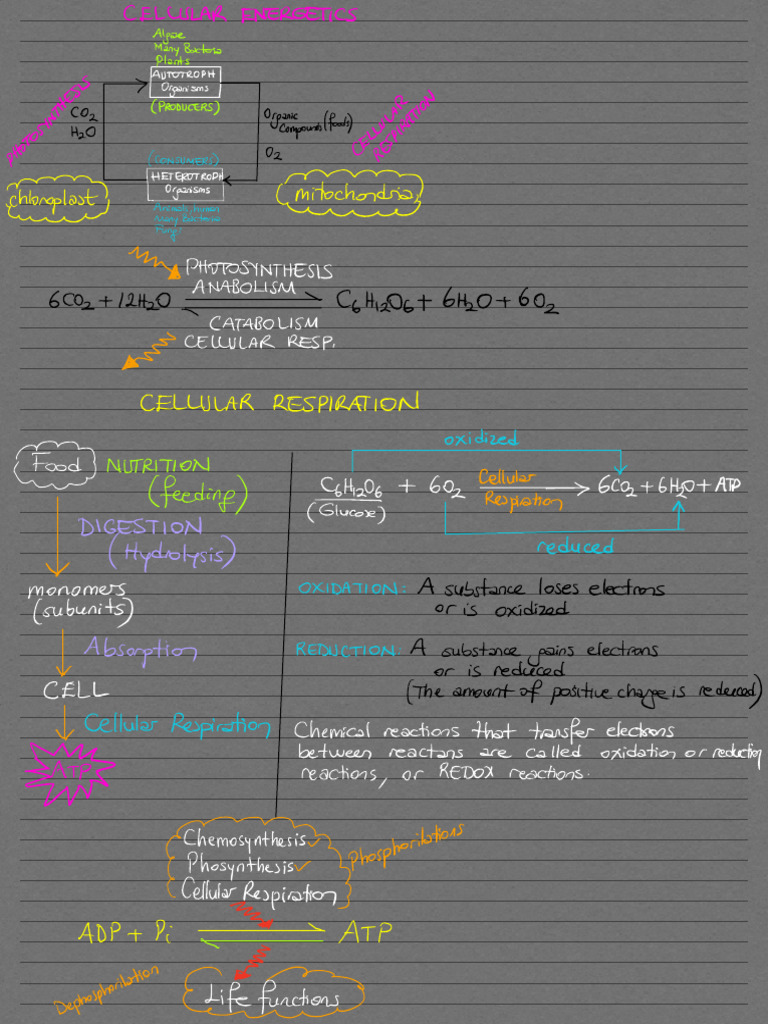 CELLULAR ENERGETICS
Algae
Many Bacteria
Plants
AUTOTROPH
Organisms
(PRODUCERS)
PHOTOSYNTHESIS
CO2
H2O
Organic
Compounds (foods)
O2
CELLULAR
RESPIRATION
(CONSUMERS)
HETEROTROPH
Organisms
Animals, human
Many Bacteria
Fungi
chloroplast
mitochondria
PHOTOSYNTHESIS
ANABOLISM
6CO2 + 12H2O C6H12O6 + 6H2O + 6O2
CATABOLISM
CELLULAR RESP.
CELLULAR RESPIRATION
Food
NUTRITION
(feeding)
DIGESTION
(Hydrolysis)
monomers
(subunits)
Absorption
CELL
Cellular Respiration
ATP
oxidized
C6H12O6 + 6O2 Cellular Respiration 6CO2 + 6H2O + ATP
(Glucose)
reduced
OXIDATION: A substance loses electrons
or is oxidized
REDUCTION: A substance gains electrons
or is reduced
(The amount of positive charge is reduced)
Chemical reactions that transfer electrons
between reactans are called oxidation or reduction
reactions, or REDOX reactions.
Chemosynthesis ✓
Phosynthesis ✓
Cellular Respiration
Phosphorilations
ADP + Pi ATP
Dephosphorilation
Life functions